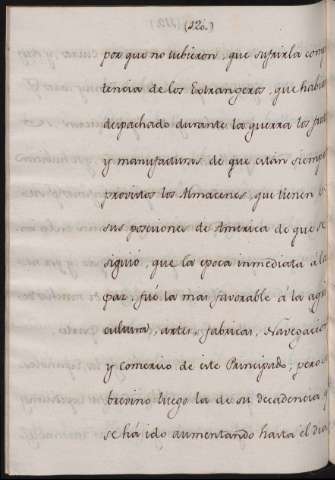 (220.)
por que no tubieron, que sufrir la com
tencia de los Estrangeros, que habia
despachado durante la guerra los fru
y manufacturas de que están siemp
provistos los Almacenes, que tienen
sus posciones de América de que se
siguió, que la epoca inmediata á la
paz, fué la mas favorable á la agri
cultura, artes, fabricas, Navegacio
y Comercio de este Principado; pero
brevino luego la de su decadencia y
se há ido aumentando hasta el dia